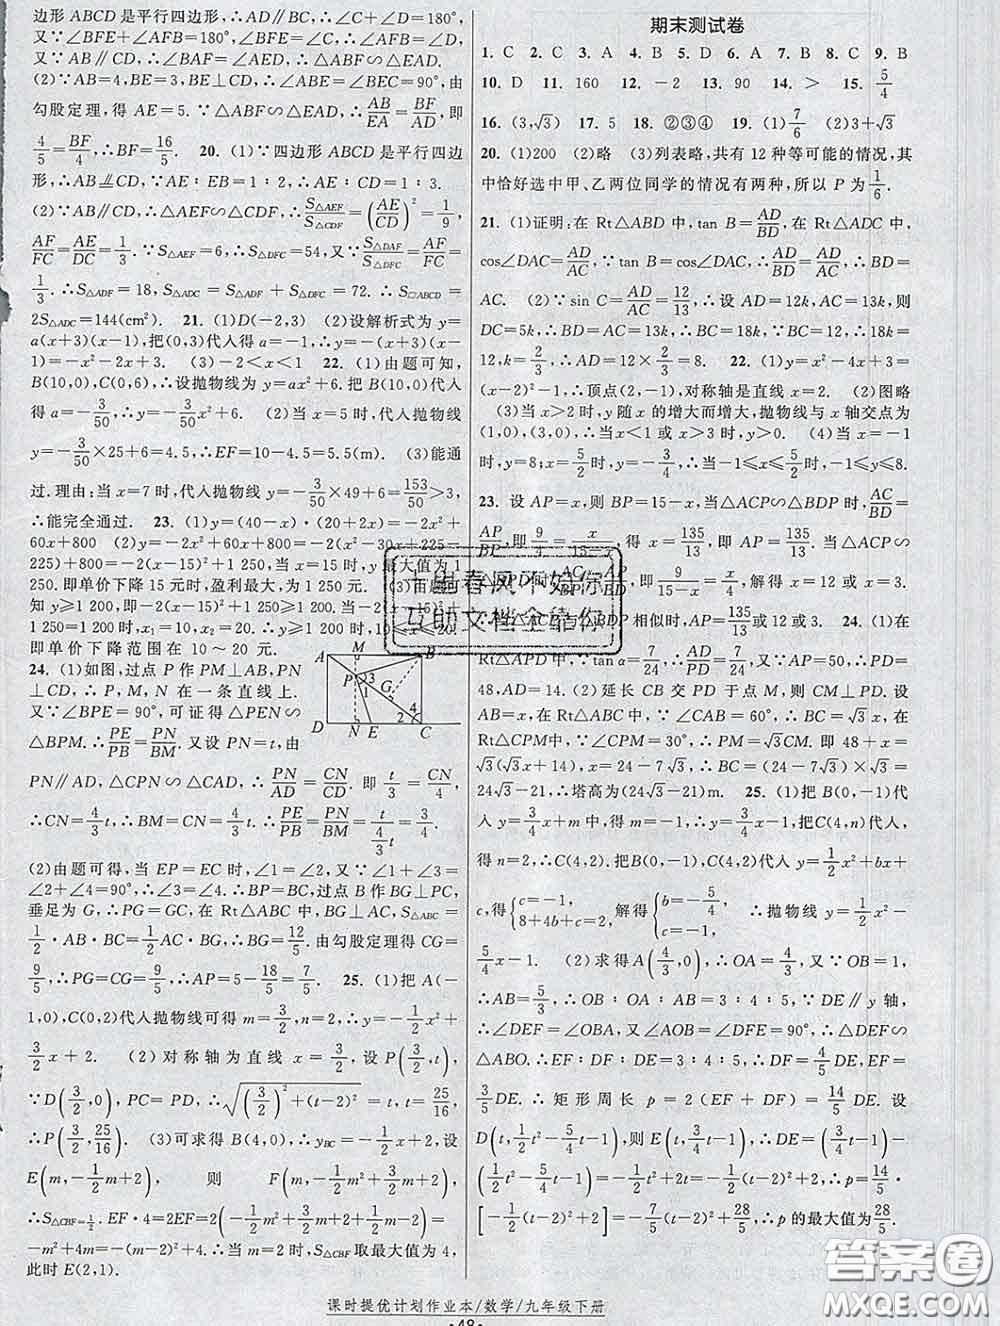 边形 ABCD 是平行四边形,∴AD∥BC,∴∠C+∠D=180°,
又∵∠BFE+∠AFB=180°,∠BFE=∠C,∴∠AFB=∠D,
又∵AB∥CD,∴∠BAF=∠AED,∴△ABF∽△EAD.
(2)∵AB=4,BE=3,BE⊥CD,∴∠ABE=∠BEC=90°,由
勾股定理,得 AE=5. ∵△ABF∽△EAD,∴AB/EA=BF/AD,即
4/5=BF/4,∴BF=16/5. 20. (1)∵四边形 ABCD 是平行四边
形,∴AB∥CD,∵AE∶EB=1∶2,∴AE∶CD=1∶3.
(2)∵AB∥CD,∴△AEF∽△CDF,∴S△AEF/S△CDF=(AE/CD)²=1/9,
AF/FC=AE/DC=1/3. ∵S△AEF=6,∴S△DFC=54,又∵S△DAF/S△DFC=AF/FC=
1/3. ∴S△ADF=18,S△ADC=S△ADF+S△DFC=72. ∴S□ABCD=
2S△ADC=144(cm²). 21. (1)D(-2,3) (2)设解析式为 y=
a(x+3)(x-1),把(0,3)代入得 a=-1,∴y=-(x+3)(x-
1)=-x²-2x+3. (3)-2<x<1 22. (1)由题可知,
B(10,0),C(0,6),∴设抛物线为 y=ax²+6. 把 B(10,0)代入
得 a=-3/50,∴y=-3/50x²+6. (2)当 x=5 时,代入抛物线
y=-3/50×25+6=4.5,∴EF=10-4.5=5.5(m). (3)能通
过.理由:当 x=7 时,代入抛物线 y=-3/50×49+6=153/50>3,
∴能完全通过. 23. (1)y=(40-x)(20+2x)=-2x²+
60x+800 (2)y=-2x²+60x+800=-2(x²-30x+225-
225)+800=-2(x-15)²+1 250. ∴当 x=15 时,y 最大值为 1
250.即单价下降 15 元时,盈利最大,为 1 250 元. (3)由题可知
y≥1 200,即-2(x-15)²+1 250≥1 200,当-2(x-15)²+
1 250=1 200 时,x₁=10,x₂=20. ∴10≤x≤20,
即单价下降范围在 10～20 元.
24. (1)如图,过点 P 作 PM⊥AB,PN
⊥CD,∴P,M,N 在一条直线上.
又∵∠BPE=90°,可证得△PEN∽
△BPM. ∴PE/PB=PN/BM. 又设 PN=t,由
PN∥AD,△CPN∽△CAD. ∴PN/AD=CN/CD. 即 t/3=CN/4.
∴CN=4/3t,∴BM=CN=4/3t. ∴PE/PB=PN/BM=t/(4/3t)=3/4.
(2)由题可得,当 EP=EC 时,∠1=∠2,又∵∠1+∠3=
∠2+∠4=90°,∴∠3=∠4. ∴BP=BC,过点 B 作 BG⊥PC,
垂足为 G,∴PG=GC,在 Rt△ABC 中,由题可得 AC=5,S△ABC=
1/2·AB·BC=1/2AC·BG,∴BG=12/5. 由勾股定理得 CG=
9/5,∴PG=CG=9/5,∴AP=5-18/5=7/5. 25. (1)把 A(-
1,0),C(0,2)代入抛物线可得 m=3/2,n=2,∴y=-1/2x²+
3/2x+2. (2)对称轴为直线 x=3/2,设 P(3/2,t),
∵D(3/2,0),PC=PD,∴√((3/2)²+(t-2)²)=t,∴t=25/16,
∴P(3/2,25/16). (3)可求得 B(4,0),∴y_BC=-1/2x+2,设
E(m,-1/2m+2) 则 F(m,-1/2m²+3/2m+2),
∴S△CBF=1/2. EF·4=2EF=2(-1/2m²+3/2m+2+1/2m-2)=
-m²+4m=-(m-2)²+4. ∴当 m=2 时,S△CBF 取最大值为 4,
此时 E(2,1).
A M B P 3 G 4 1 2 D N E C
期末测试卷
1. C 2. C 3. A 4. B 5. D 6. A 7. B 8. C 9. B
10. D 11. 160 12. -2 13. 90 14. > 15. 5/4
16. (3,√3) 17. 5 18. ②③④ 19. (1)7/6 (2)3+√3
20. (1)200 (2)略 (3)列表略,共有 12 种等可能的情况,其
中恰好选中甲、乙两位同学的情况有两种,所以 P 为1/6.
21. (1)证明:在 Rt△ABD 中,tan B=AD/BD,在 Rt△ADC 中,
cos∠DAC=AD/AC,∵tan B=cos∠DAC,∴AD/BD=AD/AC,∴BD=
AC. (2)∵sin C=AD/AC=12/13,∴设 AD=12k,AC=13k,则
DC=5k,∴BD=AC=13k,∴BC=18k,∵BC=12,∴18k=
12,k=2/3,∴AD=12×2/3=8. 22. (1)y=x²-4x+3=
(x-2)²-1,∴顶点(2,-1),对称轴是直线 x=2. (2)图略
(3)当 x>2 时,y 随 x 的增大而增大,抛物线与 x 轴交点为
(1,0),(3,0),∴当 x<1 或 x>3 时,y>0. (4)当 x=-1
时,y=8,x=5/2时,y=-3/4,∴当-1≤x≤5/2时,-1≤y≤8.
23. 设 AP=x,则 BP=15-x,当△ACP∽△BDP 时,AC/BD=
AP/BP,即9/4=x/(15-x),得 x=135/13,x=135/13,∴当△ACP∽
AP=12 或 3. 24. (1)在
Rt△APD 中,∵tan α=7/24,∴AD/PD=7/24,∵PD=
48,AD=14. (2)延长 CB 交 PD 于点 M,则 CM⊥PD. 设
AB=x,在 Rt△ABC 中,∵∠CAB=60°,∴BC=√3x,在
Rt△CPM 中,∵∠CPM=30°,∴PM=√3CM. 即 48+x=
√3(√3x+14),x=24-7√3,∴BC=(24-7√3)×√3=
24√3-21,∴塔高为(24√3-21)m. 25. (1)把 B(0,-1)代
入 y=3/4x+m 得 m=-1,∴y=3/4x-1,把 C(4,n)代入,
得 n=2,∴C(4,2).把 B(0,-1),C(4,2)代入 y=1/2x²+bx+
c,得{c=-1,8+4b+c=2,解得{b=-5/4,c=-1, ∴抛物线 y=1/2x²-
5/4x-1. (2)求得 A(4/3,0),∴OA=4/3,又∵OB=1,
∴AB=5/3,∴OB∶OA∶AB=3∶4∶5,∵DE∥y 轴,
∴∠DEF=∠OBA,又∠AOB=∠DFE=90°,∴△DEF∽
△ABO. ∴EF∶DF∶DE=3∶4∶5,∴DF=4/5DE,EF=
3/5DE. ∴矩形周长 p=2(EF+DF)=14/5DE. 设
D(t,1/2t²-5/4t-1),则 E(t,3/4t-1),∴DE=3/4t-1
-(1/2t²-5/4t-1)=-1/2t²+2t=-1/2(t-2)²+2,∴p=14/5·
[-1/2(t-2)²+2]=-7/5(t-2)²+28/5,∴p 的最大值为28/5.
课时提优计划作业本/数学/九年级下册
·48·
答案圈
MXQE.COM